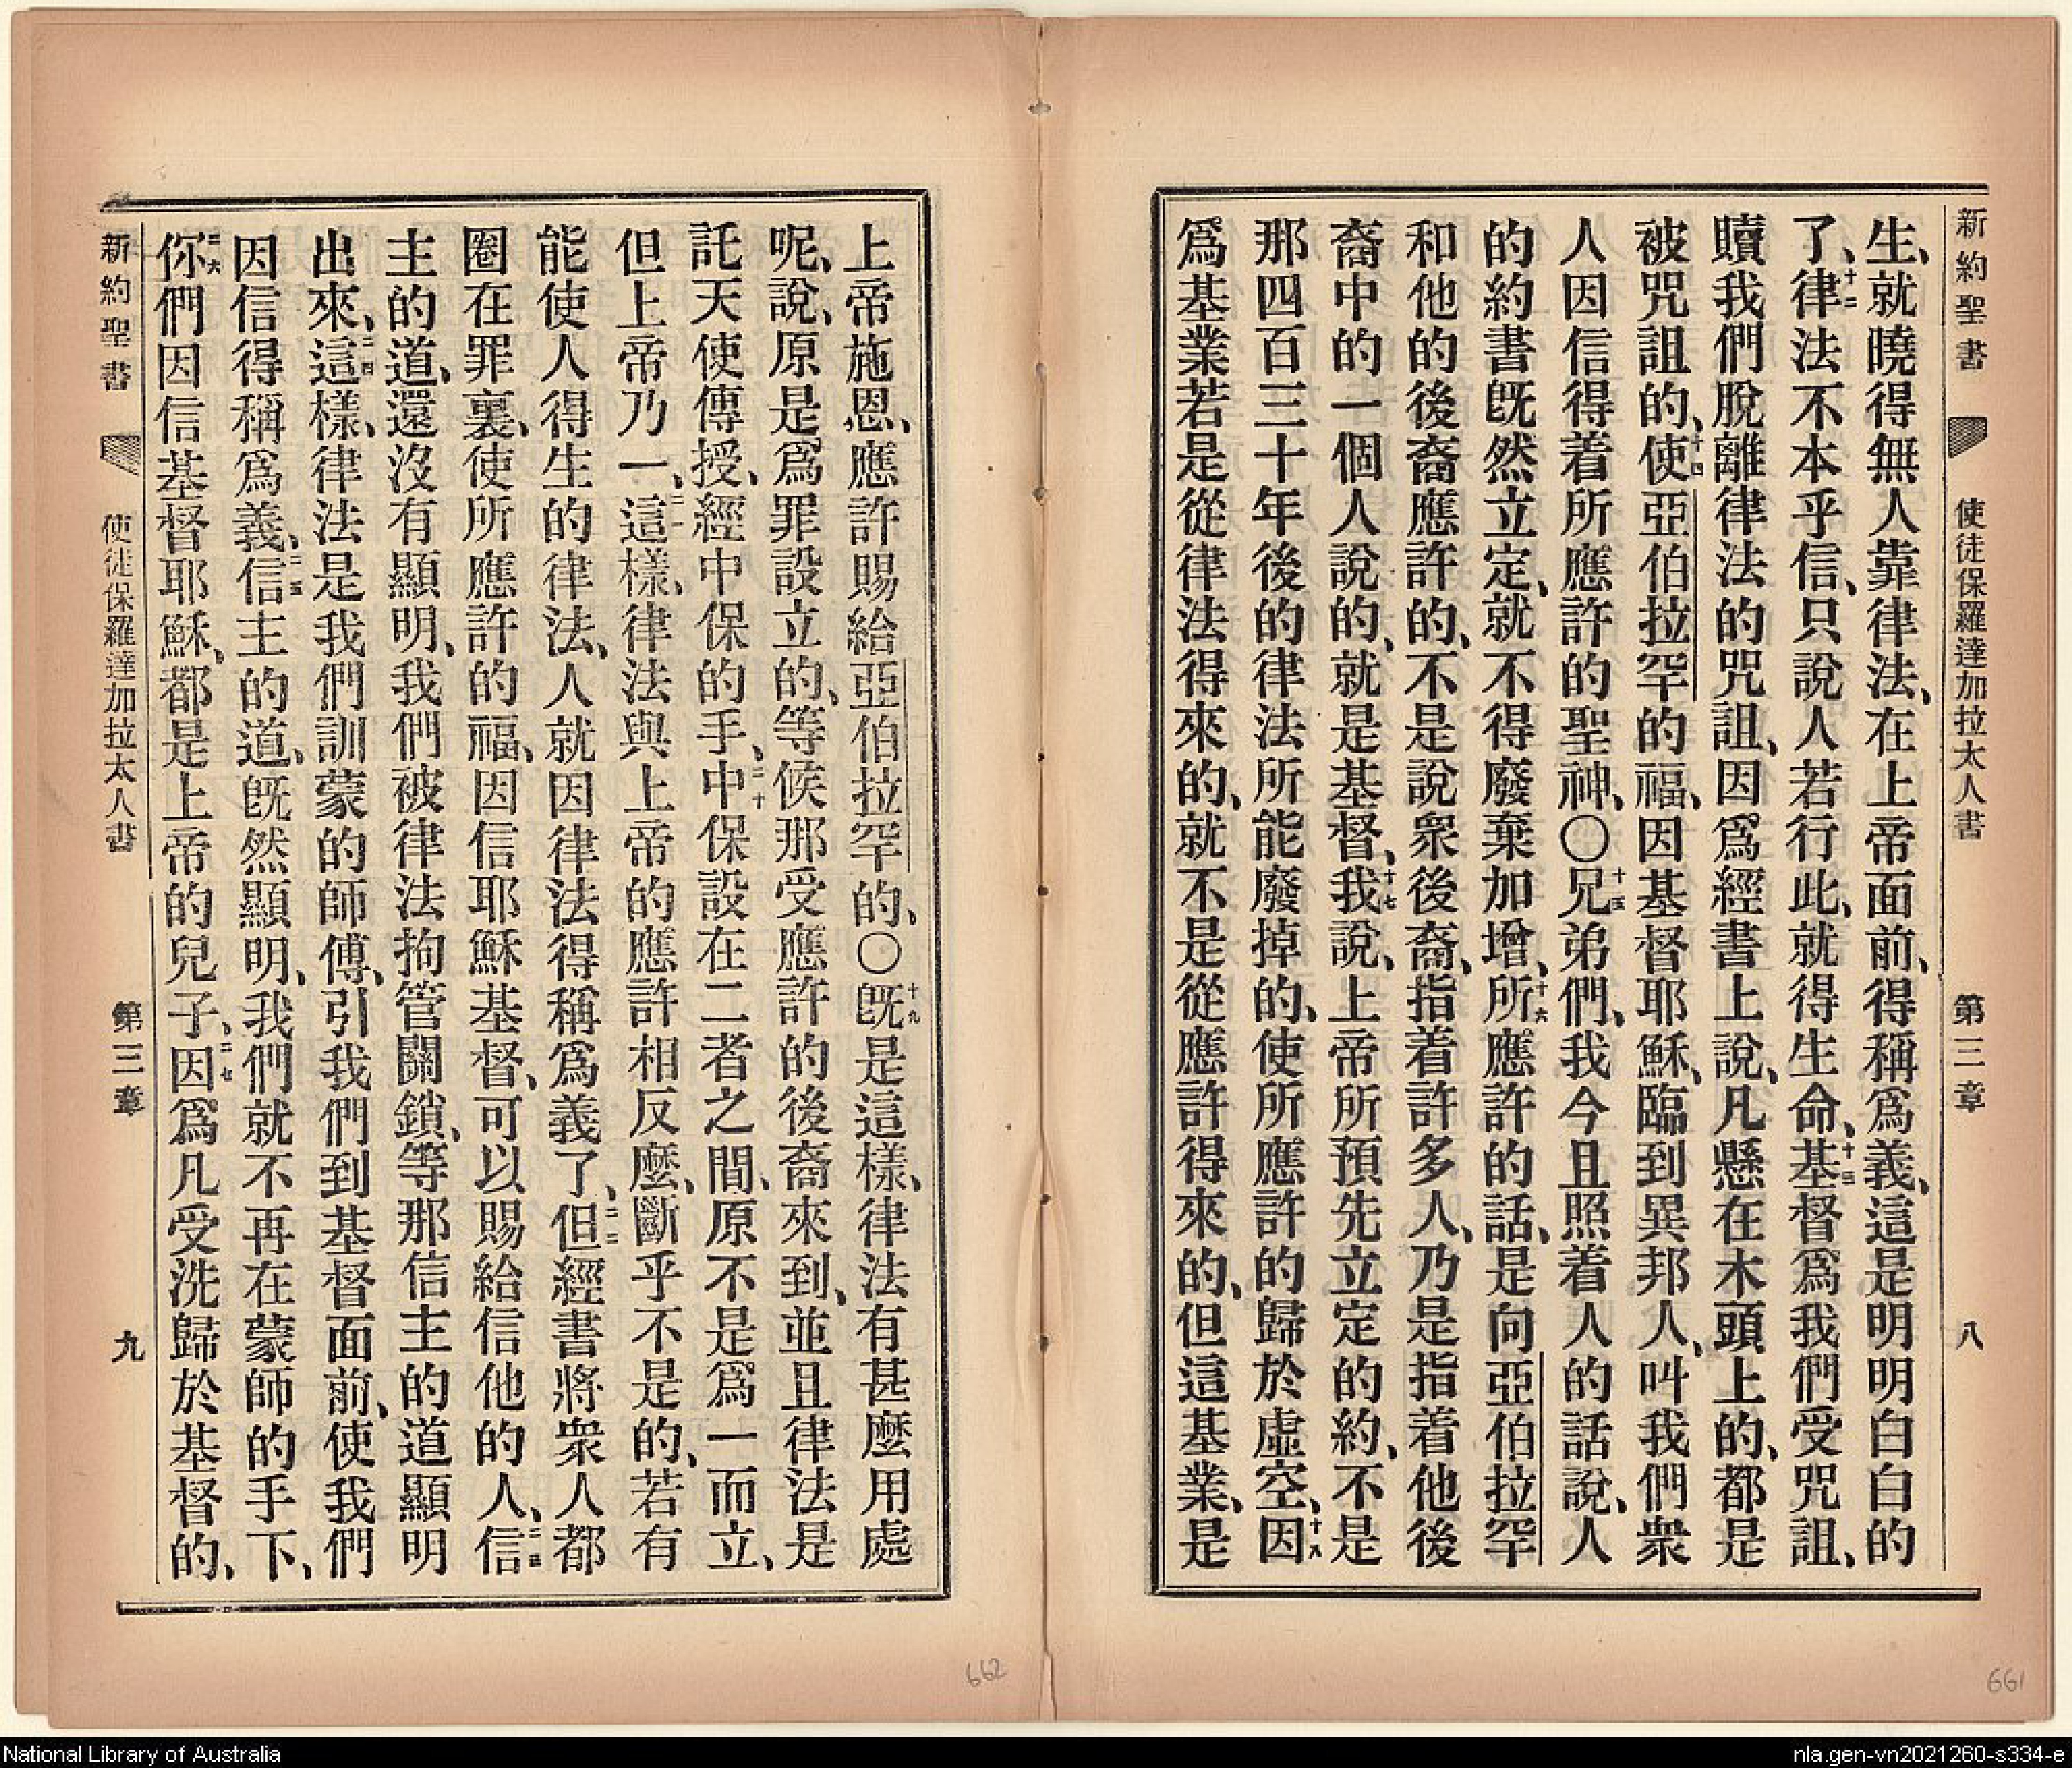 新約聖書 使徒保羅達加拉太人書 第三章 八
生、就曉得無人靠律法、在上帝面前、得稱爲義、這是明明白白的
了、十二律法不本乎信、只說人若行此、就得生命、十三基督爲我們受咒詛、
贖我們脫離律法的咒詛、因爲經書上說、凡懸在木頭上的、都是
被咒詛的、十四使亞伯拉罕的福、因基督耶穌、臨到異邦人、叫我們衆
人因信得着所應許的聖神、〇十五兄弟們、我今且照着人的話說、人
的約書旣然立定、就不得廢棄加增、十六所應許的話、是向亞伯拉罕
和他的後裔應許的、不是說衆後裔、指着許多人、乃是指着他後
裔中的一個人說的、就是基督、十七我說、上帝所預先立定的約、不是
那四百三十年後的律法所能廢掉的、使所應許的歸於虛空、十八因
爲基業若是從律法得來的、就不是從應許得來的、但這基業、是
上帝施恩、應許賜給亞伯拉罕的、〇十九旣是這樣、律法有甚麼用處
呢、說、原是爲罪設立的、等候那受應許的後裔來到、並且律法是
託天使傳授、經中保的手、二十中保設在二者之間、原不是爲一而立、
但上帝乃一、二一這樣、律法與上帝的應許相反麼、斷乎不是的、若有
能使人得生的律法、人就因律法得稱爲義了、二二但經書將衆人都
圈在罪裏、使所應許的福、因信耶穌基督、可以賜給信他的人、二三信
主的道、還沒有顯明、我們被律法拘管關鎖、等那信主的道顯明
出來、二四這樣、律法是我們訓蒙的師傅、引我們到基督面前、使我們
因信得稱爲義、二五信主的道、旣然顯明、我們就不再在蒙師的手下、
二六你們因信基督耶穌、都是上帝的兒子、二七因爲凡受洗歸於基督的、
新約聖書 使徒保羅達加拉太人書 第三章 九
662
661
National Library of Australia
nla.gen-vn2021260-s334-e